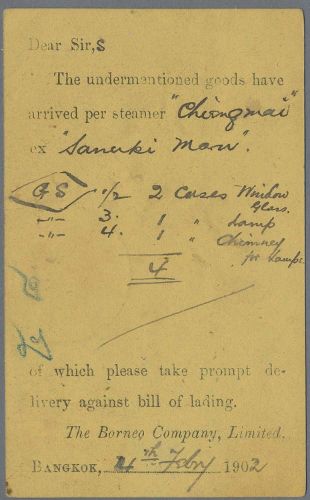 Dear Sir,s
The undermentioned goods have
arrived per steamer "Chiengmai"
ex "Sanuki Maru".
GS 1/2 2 Cases Window
Glass.
-"- 3. 1 " Lamp
-"- 4. 1 " Chimney
for Lamps
4
of which please take prompt de-
livery against bill of lading.
The Borneo Company, Limited.
BANGKOK, 4th Feby 1902